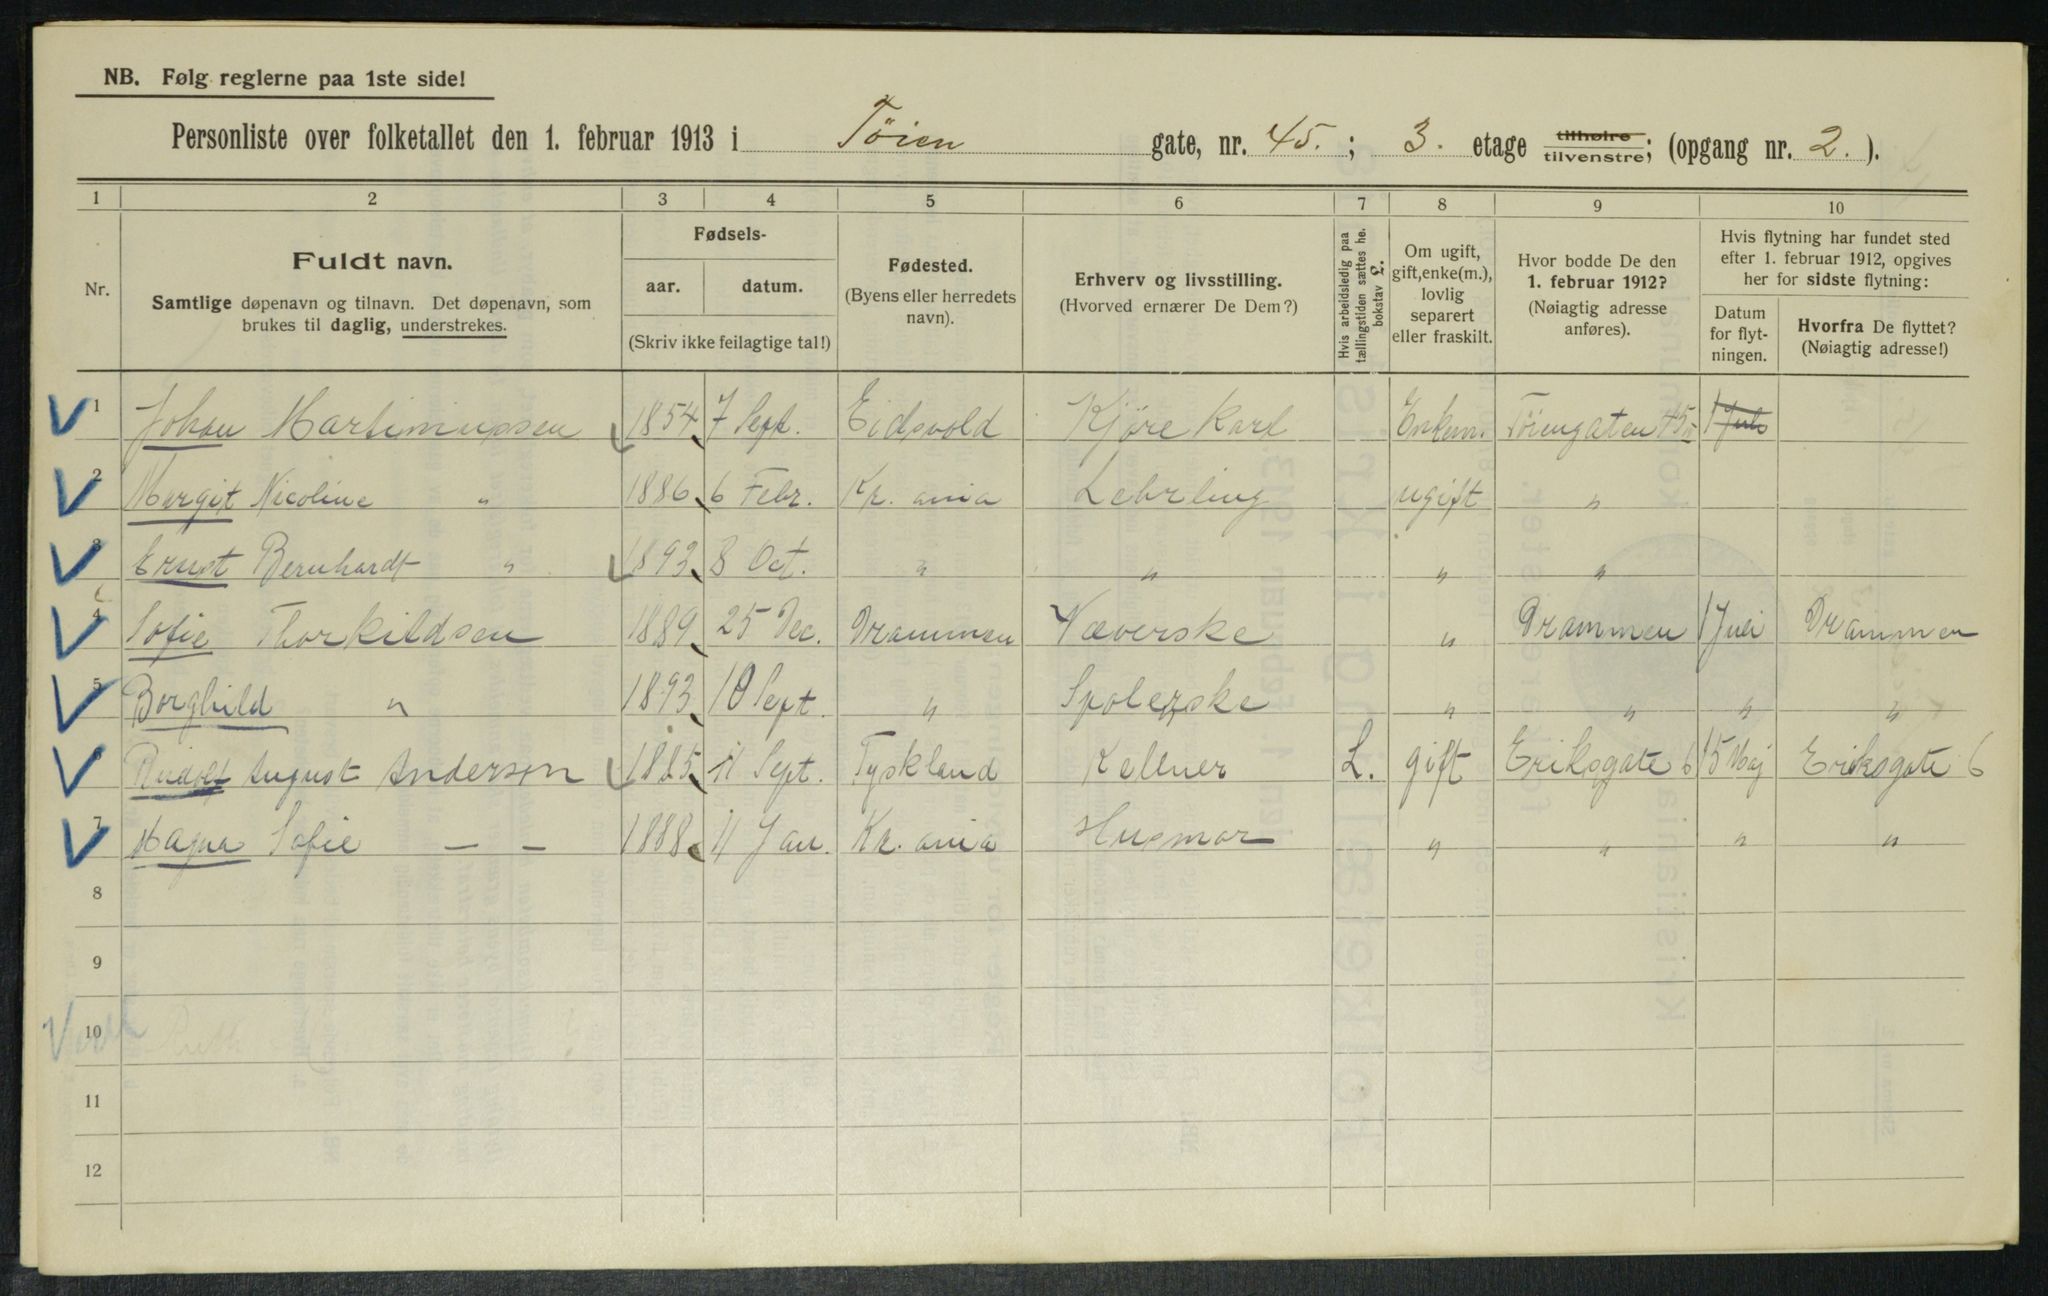 NB. Følg reglerne paa 1ste side!
Personliste over folketallet den 1. februar 1913 i Töien gate, nr. 45. ; 3. etage tilhøire tilvenstre; (opgang nr. 2. ).
1 2 3 4 5 6 7 8 9 10
Nr.
Fuldt navn.
Samtlige døpenavn og tilnavn. Det døpenavn, som
brukes til daglig, understrekes.
Fødsels-
aar. datum.
(Skriv ikke feilagtige tal!)
Fødested.
(Byens eller herredets
navn).
Erhverv og livsstilling.
(Hvorved ernærer De Dem?)
Hvis arbeidsledig paa
tællingstiden sættes he.
bokstav L.
Om ugift,
gift, enke(m.),
lovlig
separert
eller fraskilt.
Hvor bodde De den
1. februar 1912?
(Nøiagtig adresse
anføres).
Hvis flytning har fundet sted
efter 1. februar 1912, opgives
her for sidste flytning:
Datum
for flyt-
ningen.
Hvorfra De flyttet?
(Nøiagtig adresse!)
1 Johan Martinussen 1854 7 Sept. Eidsvold Kjøre Karl Enkem. Töiengaten 45 III 1 Juli
2 Margit Nicoline " 1886 6 Febr. Kr. ania Lehrling ugift "
3 Ernst Bernhardt " 1893 8 Oct. " " " "
4 Sofie Thorkildsen 1889 25 Dec. Drammen Væverske " Drammen 1 Juli Drammen
5 Borghild " 1893 10 Sept. " Spolerske " " " "
6 Rudolf August Anderson 1885 11 Sept. Tyskland Kellner L. gift Eriksgate 6 15 Maj Eriksgate 6
7 Magna Sofie — — 1888 11 Jan. Kr. ania Husmor " " " "
8
9
10 Ruth
11
12